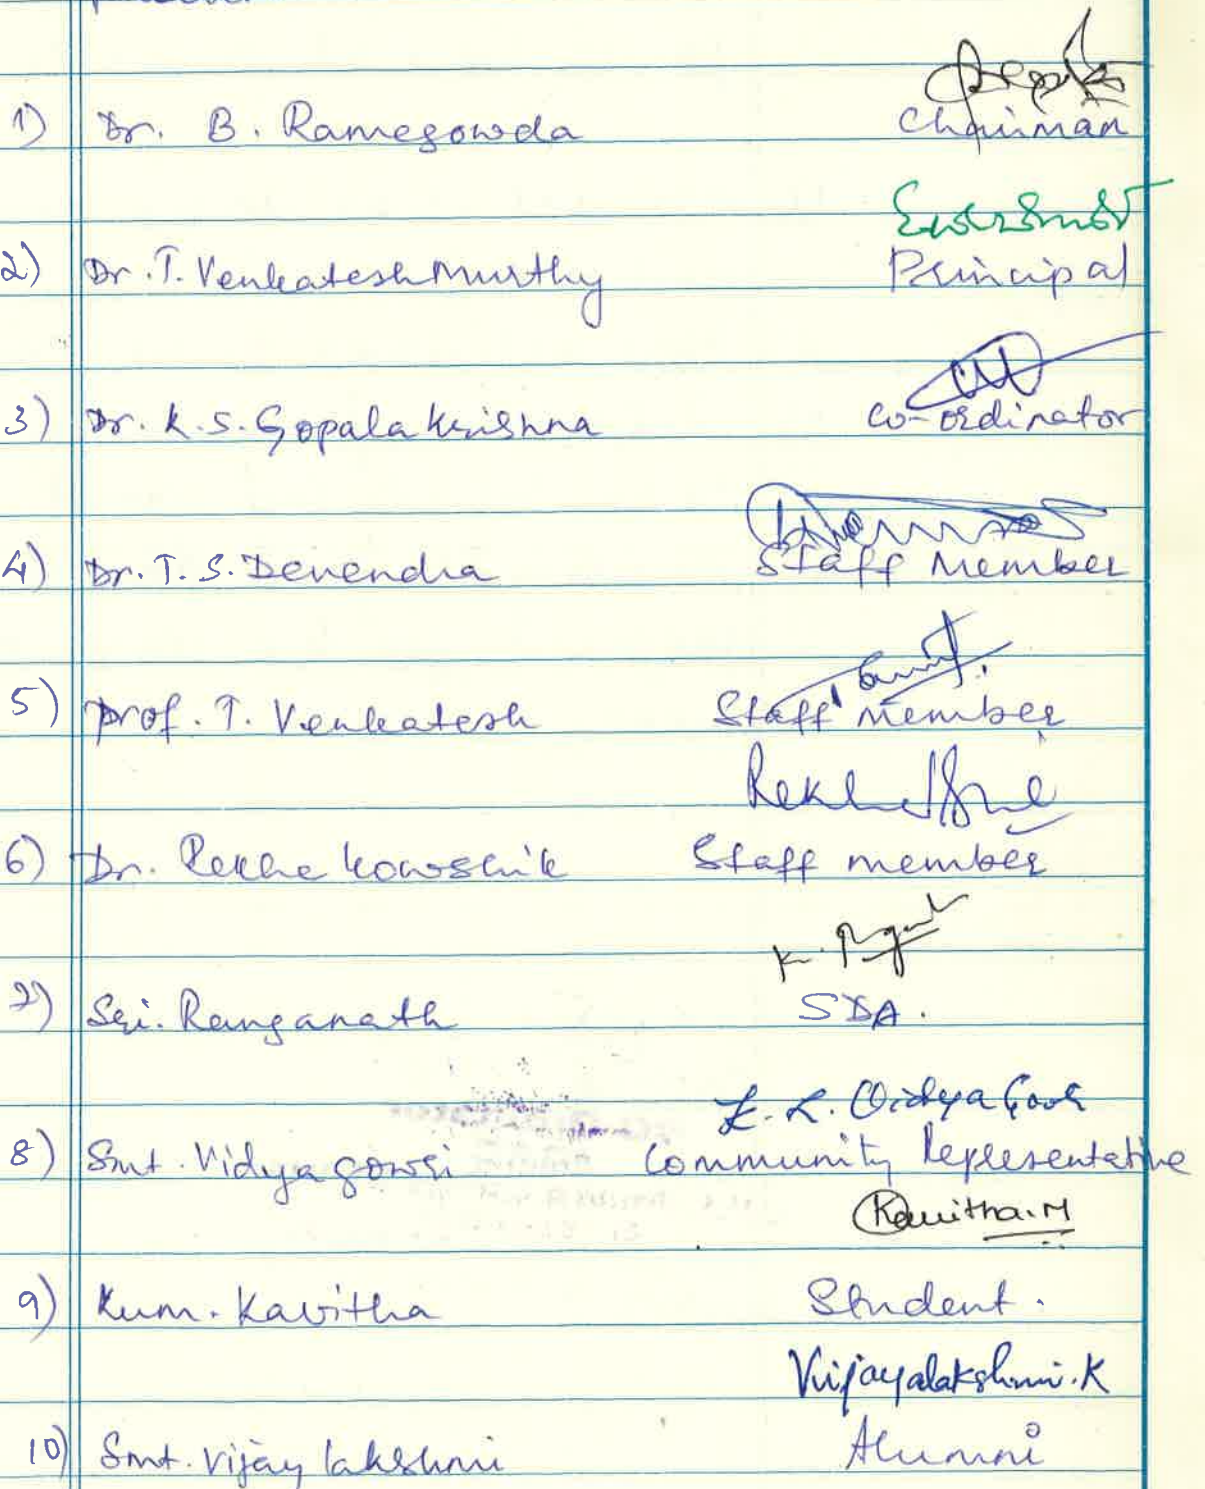 1) Dr. B. Ramegowda
Chairman
2) Dr. T. Venkatesh Murthy
Principal
3) Dr. K. S. Gopala Krishna
Co-ordinator
4) Dr. T. S. Devendra
Staff Member
5) Prof. T. Venkatesh
Staff Member
6) Dr. Rekha Kowshik Staff member
7) Sri. Ranganath
SDA.
8) Smt. Vidya gowri Community Representative
Kavitha.M
9) Kum. Kavitha Student.
Vijayalakshmi.K
10) Smt. Vijay lakshmi Alumni